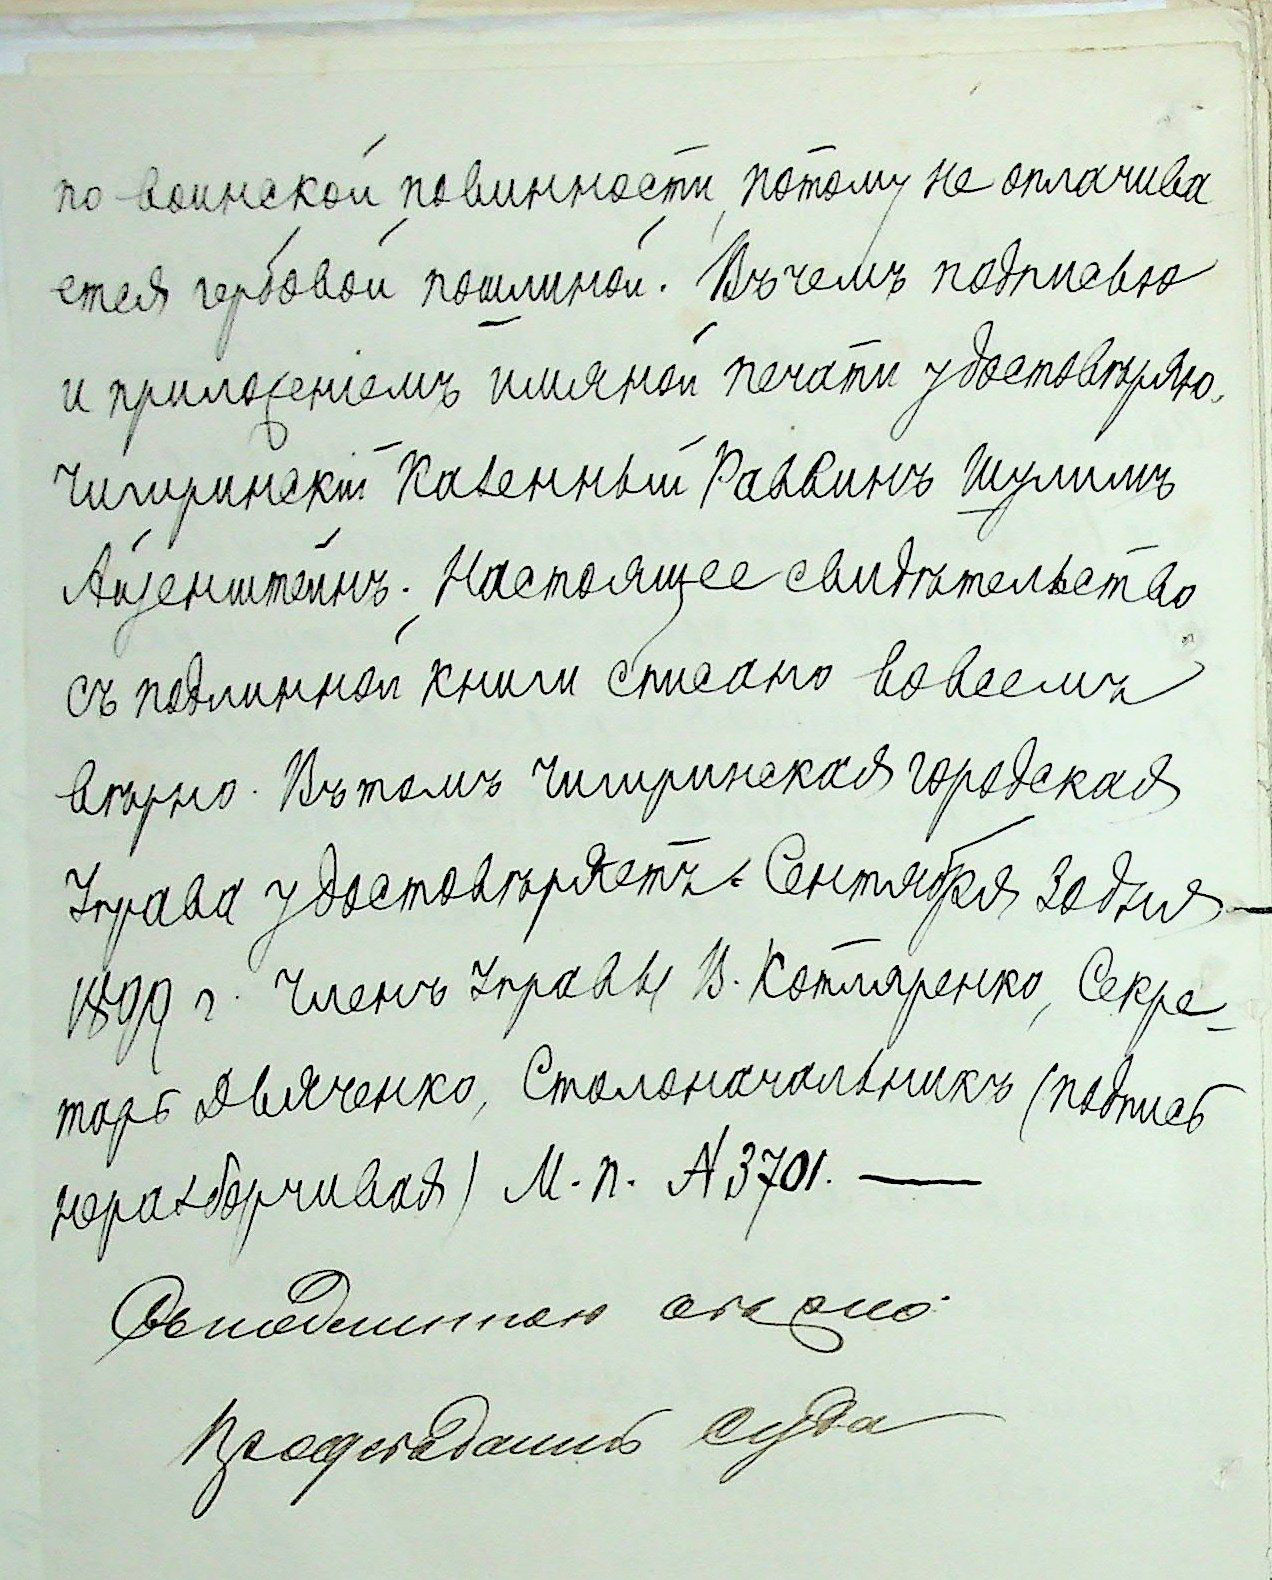 по воинской повинности, потому не оплачива
ется гербовой пошлиной. Въ чемъ подписью
и приложеніемъ имяной печати удостовѣряю.
Чигиринскій Казенный Раввинъ Шулимъ
Айзенштейнъ. Настоящее свидѣтельство
съ подлинной книги списано во всемъ
вѣрно. Въ томъ Чигиринская городская
Управа удостовѣряетъ. Сентября 30 дня —
1899 г. Членъ Управы В. Котляренко, Секре-
тарь Дьяченко, Столоначальникъ (подпись
неразборчивая) М. п. № 3701. —
Съ подлинною вѣрно:
Предсѣдатель суда